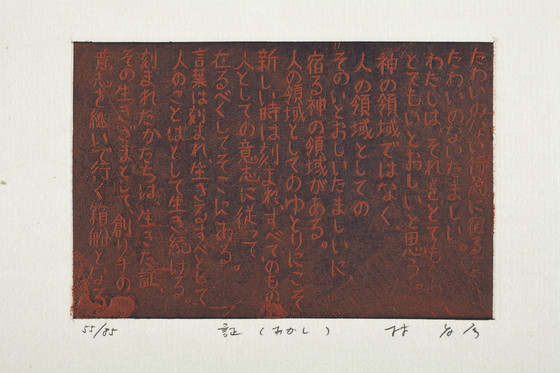 たわいのない
たわいのないたましい。
わたしは、それをとても
とてもいとおしいと思う。
神の領域ではなく
人の領域としての
そのいとおしいたましいに
宿る神の領域がある。
人の領域としてのゆとりにこそ
新しい時は刻まれ、すべてのもの
人としての意志に従って
在るべくしてそこにある。
言葉は刻まれ、生きるすべとして
人のことばとして生き続ける
刻まれたかたちは、生きた証、
その生きざまとして、創り手の
意志を継いで行く箱船となる
55/85 証(あかし) 林